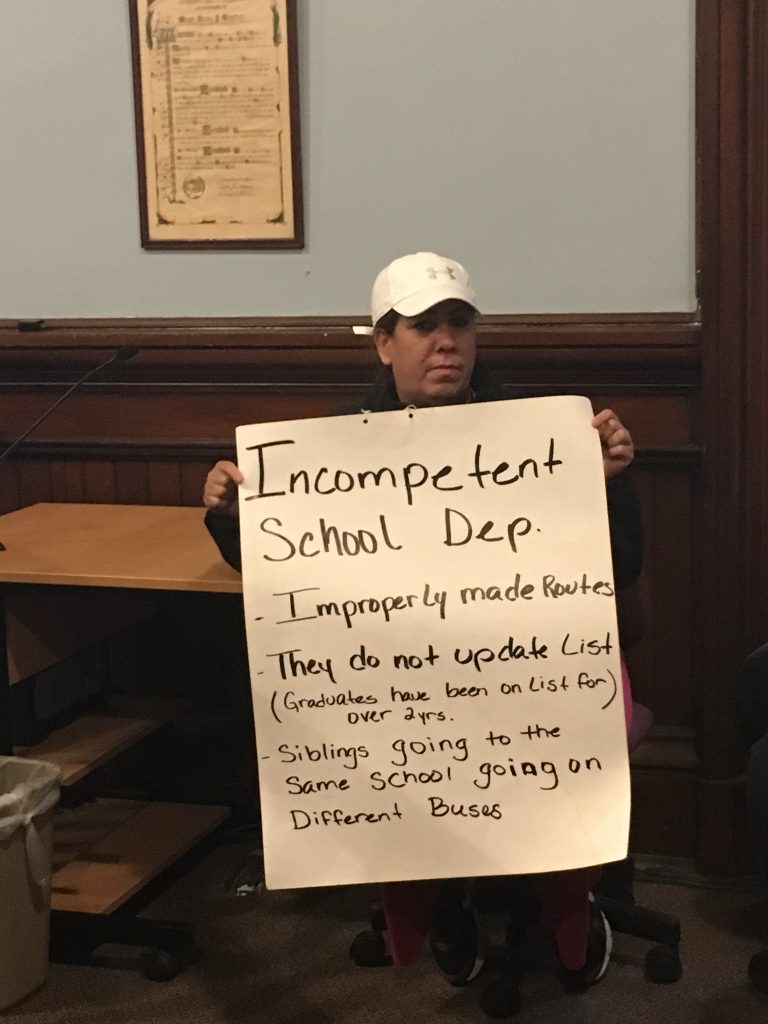 Incompetent
School Dep.
- Improperly made Routes
- They do not update List
(Graduates have been on List for)
over 2yrs.
- Siblings going to the
Same School going on
Different Buses